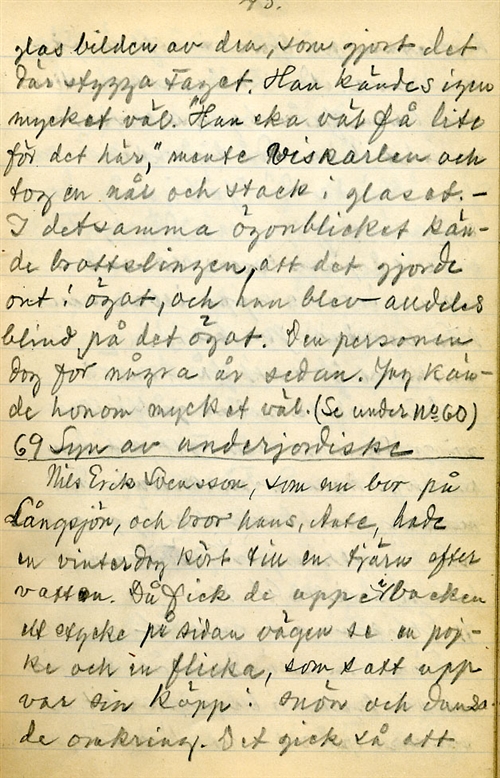 glasbilden av den, som gjort det
där stygga taget. Han kändes igen
mycket väl. "Han ska väl få lite
för det här," mente Viskarlen och
tog en nål och stack i glaset. —
I detsamma ögonblicket kän-
de brottslingen, att det gjorde
ont i ögat, och han blev alldeles
blind på det ögat. Den personen
dog för några år sedan. Jag kän-
de honom mycket väl. (Se under No 60)
69 Syn av underjordiske
Nils Erik Svensson, som nu bor på
Långsjön, och bror hans, Ante, hade
en vinterdag kört till en tjärn efter
vatten. Då fick de uppe i backen
ett stycke på sidan vägen se en poj-
ke och en flicka, som satt upp
var sin käpp i snön och dansa-
de omkring. Det gick så att